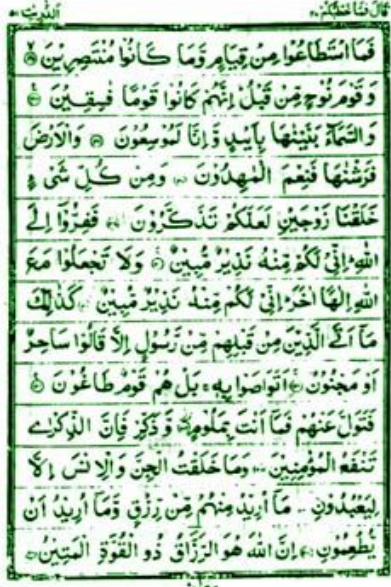 قال فما خطبكم ٢٧ الذريت ٥١
فَمَا اسْتَطَاعُوْا مِنْ قِيَامٍ وَّمَا كَانُوْا مُنْتَصِرِيْنَ
وَ قَوْمَ نُوْحٍ مِّنْ قَبْلُ اِنَّهُمْ كَانُوْا قَوْمًا فٰسِقِيْنَ
وَالسَّمَآءَ بَنَيْنٰهَا بِاَيْىدٍ وَّ اِنَّا لَمُوْسِعُوْنَ وَالْاَرْضَ
فَرَشْنٰهَا فَنِعْمَ الْمٰهِدُوْنَ وَمِنْ كُلِّ شَىْءٍ
خَلَقْنَا زَوْجَيْنِ لَعَلَّكُمْ تَذَكَّرُوْنَ فَفِرُّوْٓا اِلَى
اللّٰهِ اِنِّىْ لَكُمْ مِّنْهُ نَذِيْرٌ مُّبِيْنٌ وَلَا تَجْعَلُوْا مَعَ
اللّٰهِ اِلٰهًا اٰخَرَ اِنِّىْ لَكُمْ مِّنْهُ نَذِيْرٌ مُّبِيْنٌ كَذٰلِكَ
مَآ اَتَى الَّذِيْنَ مِنْ قَبْلِهِمْ مِّنْ رَّسُوْلٍ اِلَّا قَالُوْا سَاحِرٌ
اَوْ مَجْنُوْنٌ اَتَوَاصَوْا بِهٖ بَلْ هُمْ قَوْمٌ طَاغُوْنَ
فَتَوَلَّ عَنْهُمْ فَمَآ اَنْتَ بِمَلُوْمٍ وَّ ذَكِّرْ فَاِنَّ الذِّكْرٰى
تَنْفَعُ الْمُؤْمِنِيْنَ وَمَا خَلَقْتُ الْجِنَّ وَالْاِنْسَ اِلَّا
لِيَعْبُدُوْنِ مَآ اُرِيْدُ مِنْهُمْ مِّنْ رِّزْقٍ وَّمَآ اُرِيْدُ اَنْ
يُّطْعِمُوْنِ اِنَّ اللّٰهَ هُوَ الرَّزَّاقُ ذُو الْقُوَّةِ الْمَتِيْنُ